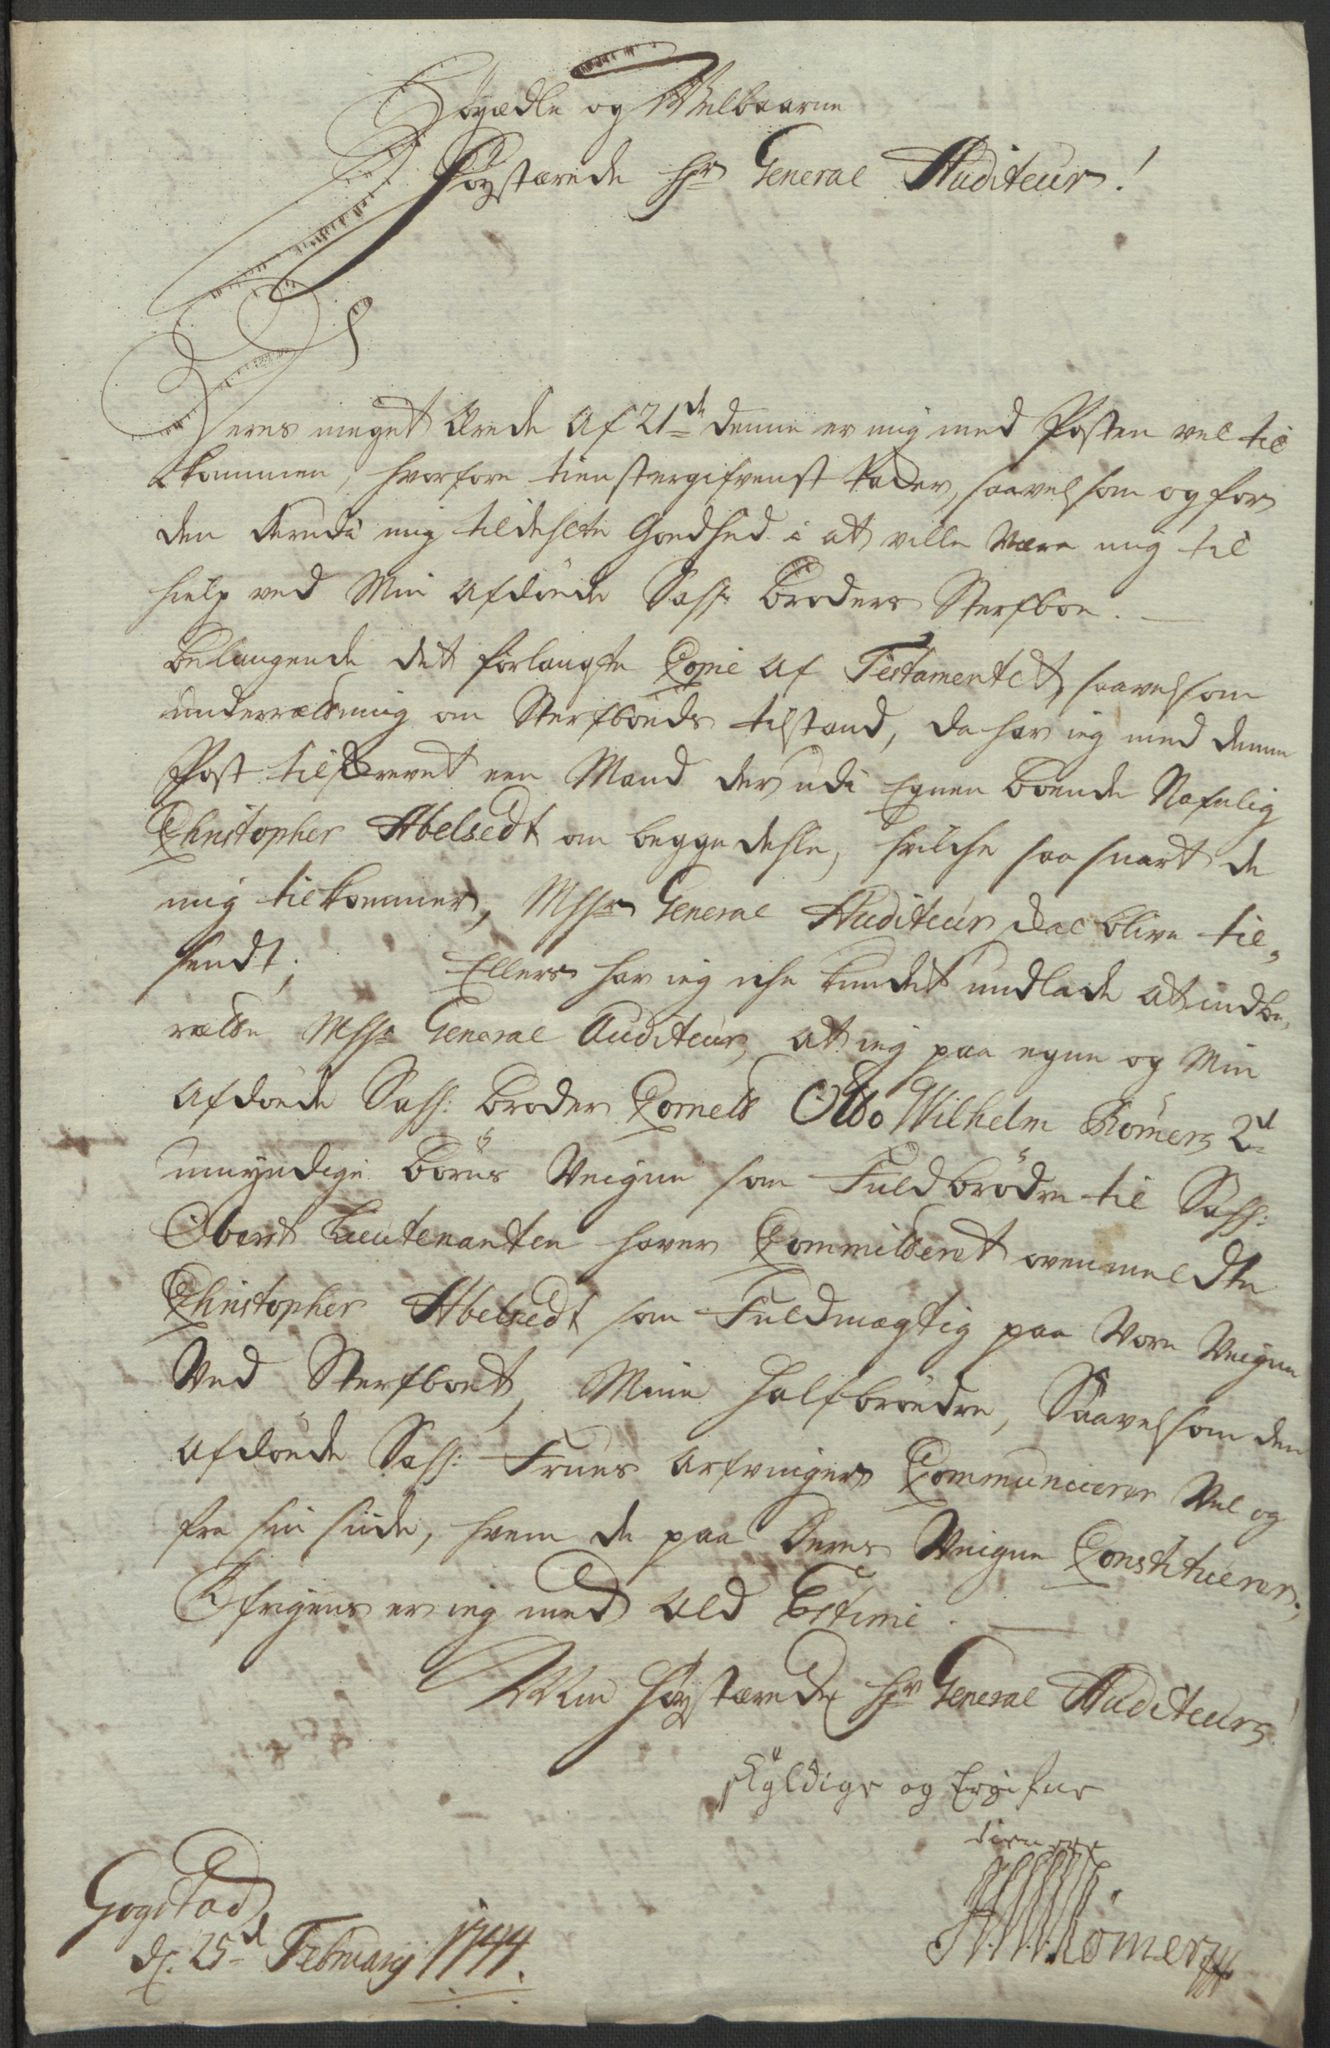 Høyædle og Welbaarne
Høystærede Hr General Auditeur!
Deres meget ærede af 21de denne er mig med Posten vel til
kommen, hvorfore tienstergifvenst takker, saavelsom og for
den derudi mig tildeelte Godhed i at ville være mig til
hielp ved Min afdøde Sal: Broders Sterfboe.
Belangende det forlangte Copie af Testamentet, saavelsom
underrætning om Sterfboeds tilstand, da har ieg med denne
Post tilskrevet een Mand der udi Egnen boende Nafnlig
Christopher Abelsedt om begge dehle, hvilche saa snart de
mig tilkommer, Mhr General Auditeur skal blive til„
sendt; Ellers har ieg iche kundet undlade at indbe„
rætte Mhr General Auditeur, at ieg paa egne og Min
afdøde Sal: Broder Cornett Otto Wilhelm Römers 2de
umyndige Børns Veigne som Fuldbrødre til Sal:
Oberst Lieutenanten haver Committeret ovenmeldte
Christopher Abelsedt som Fuldmægtig paa Vore Veigne
Ved Sterfboet, Mine Halfbrødre, Saavelsom den
afdøde Sal: Frues Arfvinger Communicerer Vel og
fra sin siide, hvem de paa Deres Veigne Constituerer,
Øfrigens er ieg med all Estime.
Min Høystærede Hr General Auditeurs!
skyldige og Ergifne
tienere
H W Römer
Gogstad
d. 25de February 1744.